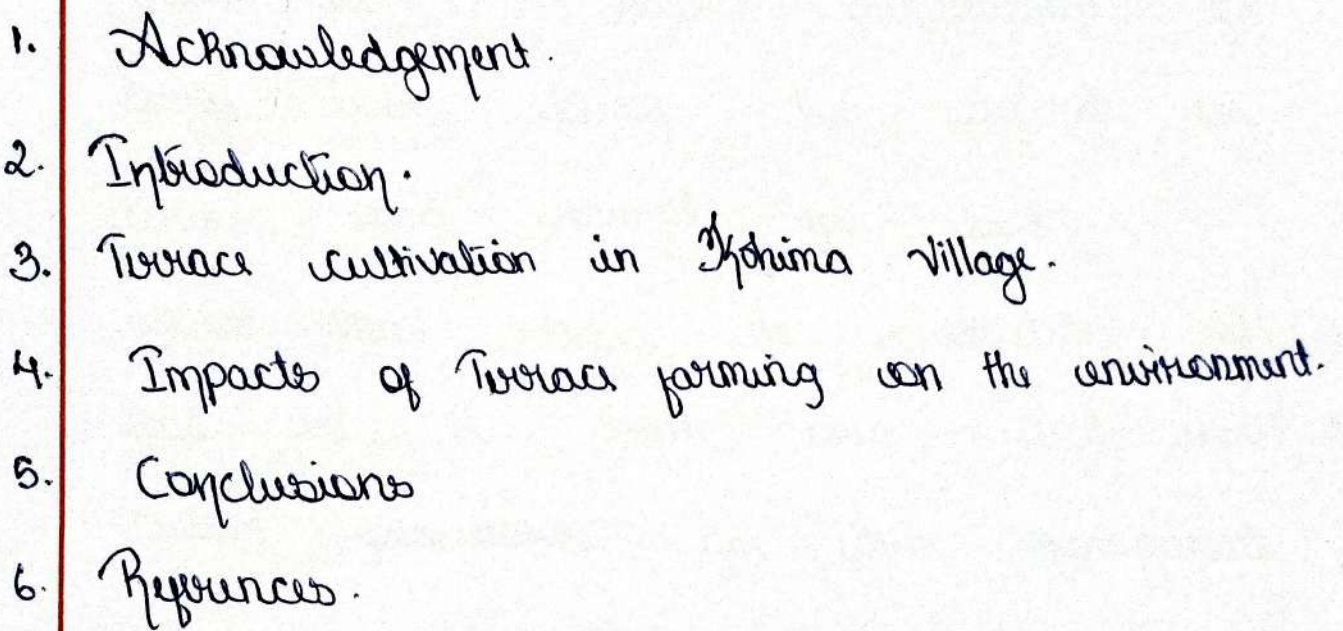 1. Acknowledgement.
2. Introduction.
3. Terrace cultivation in Kohima Village.
4. Impacts of Terrace farming on the environment.
5. Conclusions
6. References.